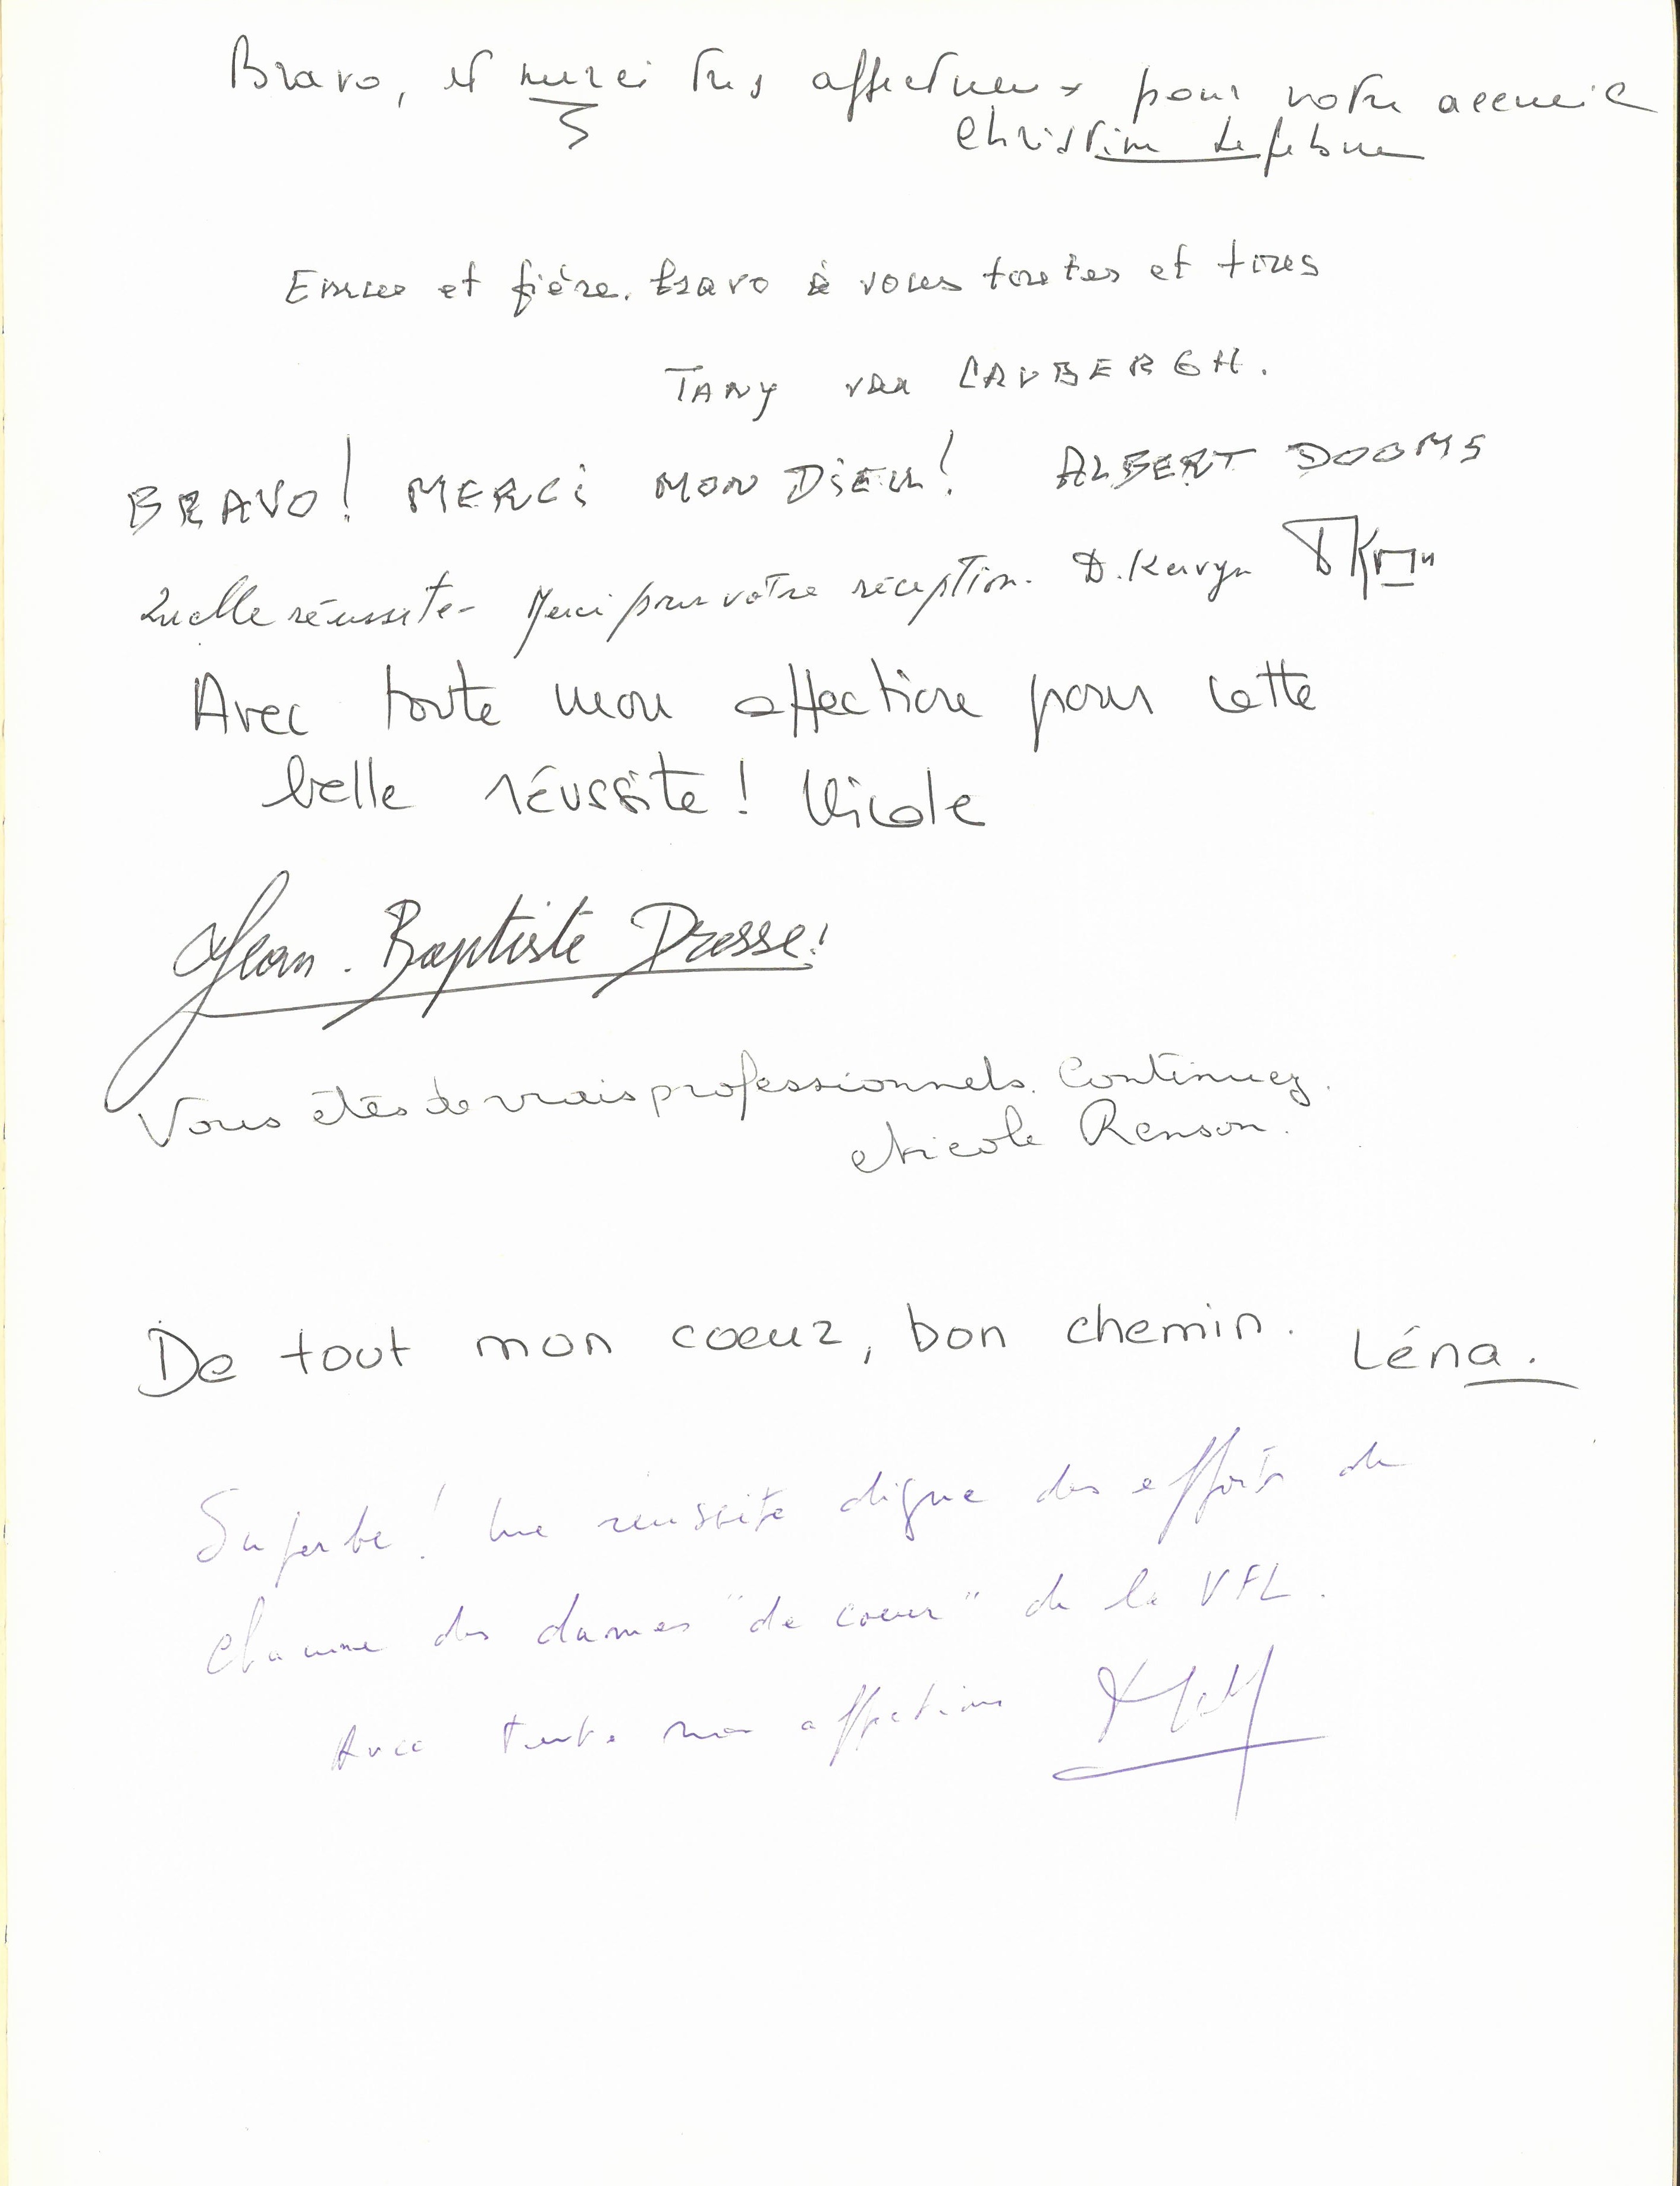 Bravo, et merci très affectueux pour votre accueil
Christine Lefebvre
Emue et fière. bravo à vous toutes et tous
TANY van CAUBERGH.
BRAVO! MERCi MON DiEU! ALBERT DOOMS
Quelle réussite - Merci pour votre réception. D. Kervyn
Avec toute mon affection pour cette
belle réussite! Nicole
Jean-Baptiste Dresse!
Vous êtes de vrais professionnels. Continuez.
Nicole Renson.
De tout mon coeur, bon chemin. Léna.
Superbe! Une réussite digne des efforts de
chacune des dames "de coeur" de la VFL.
Avec toute mon affection